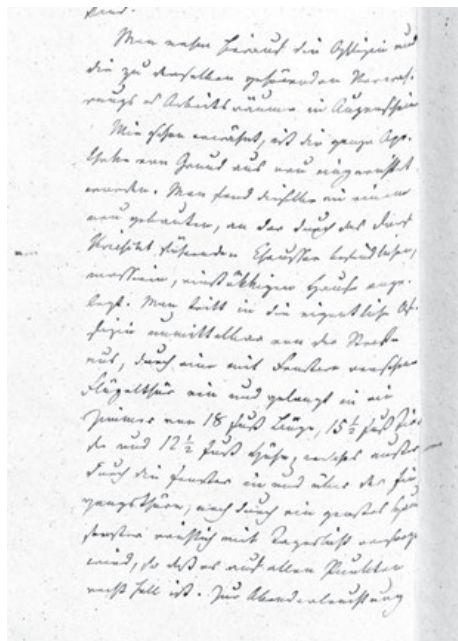 sind.
Man nahm hierauf die Offizin und
die zu derselben gehörenden Vorrath-
rungs & Arbeitsräume in Augenschein
Wie schon erwähnt, ist die ganze Apo-
theke von Grund aus neu eingerichtet
worden. Man fand dieselbe in einem
neu gebauten, an der durch das Dorf
führenden Chaussee befindlichen,
massiven, einstöckigen Hause ange-
legt. Man tritt in die eigentliche Of-
fizin unmittelbar von der Straße
aus, durch eine mit Fenstern versehene
Flügelthür ein und gelangt in ein
Zimmer von 18 Fuß Länge, 15 ½ Fuß Tie-
fe und 12 ½ Fuß Höhe, welches außer
durch die Fenster in und über der Ein-
gangsthüre, noch durch ein großes
fenster reichlich mit Tageslicht versorgt
wird, so daß es auf allen Punkten
recht hell ist. Zur Abenderleuchtung